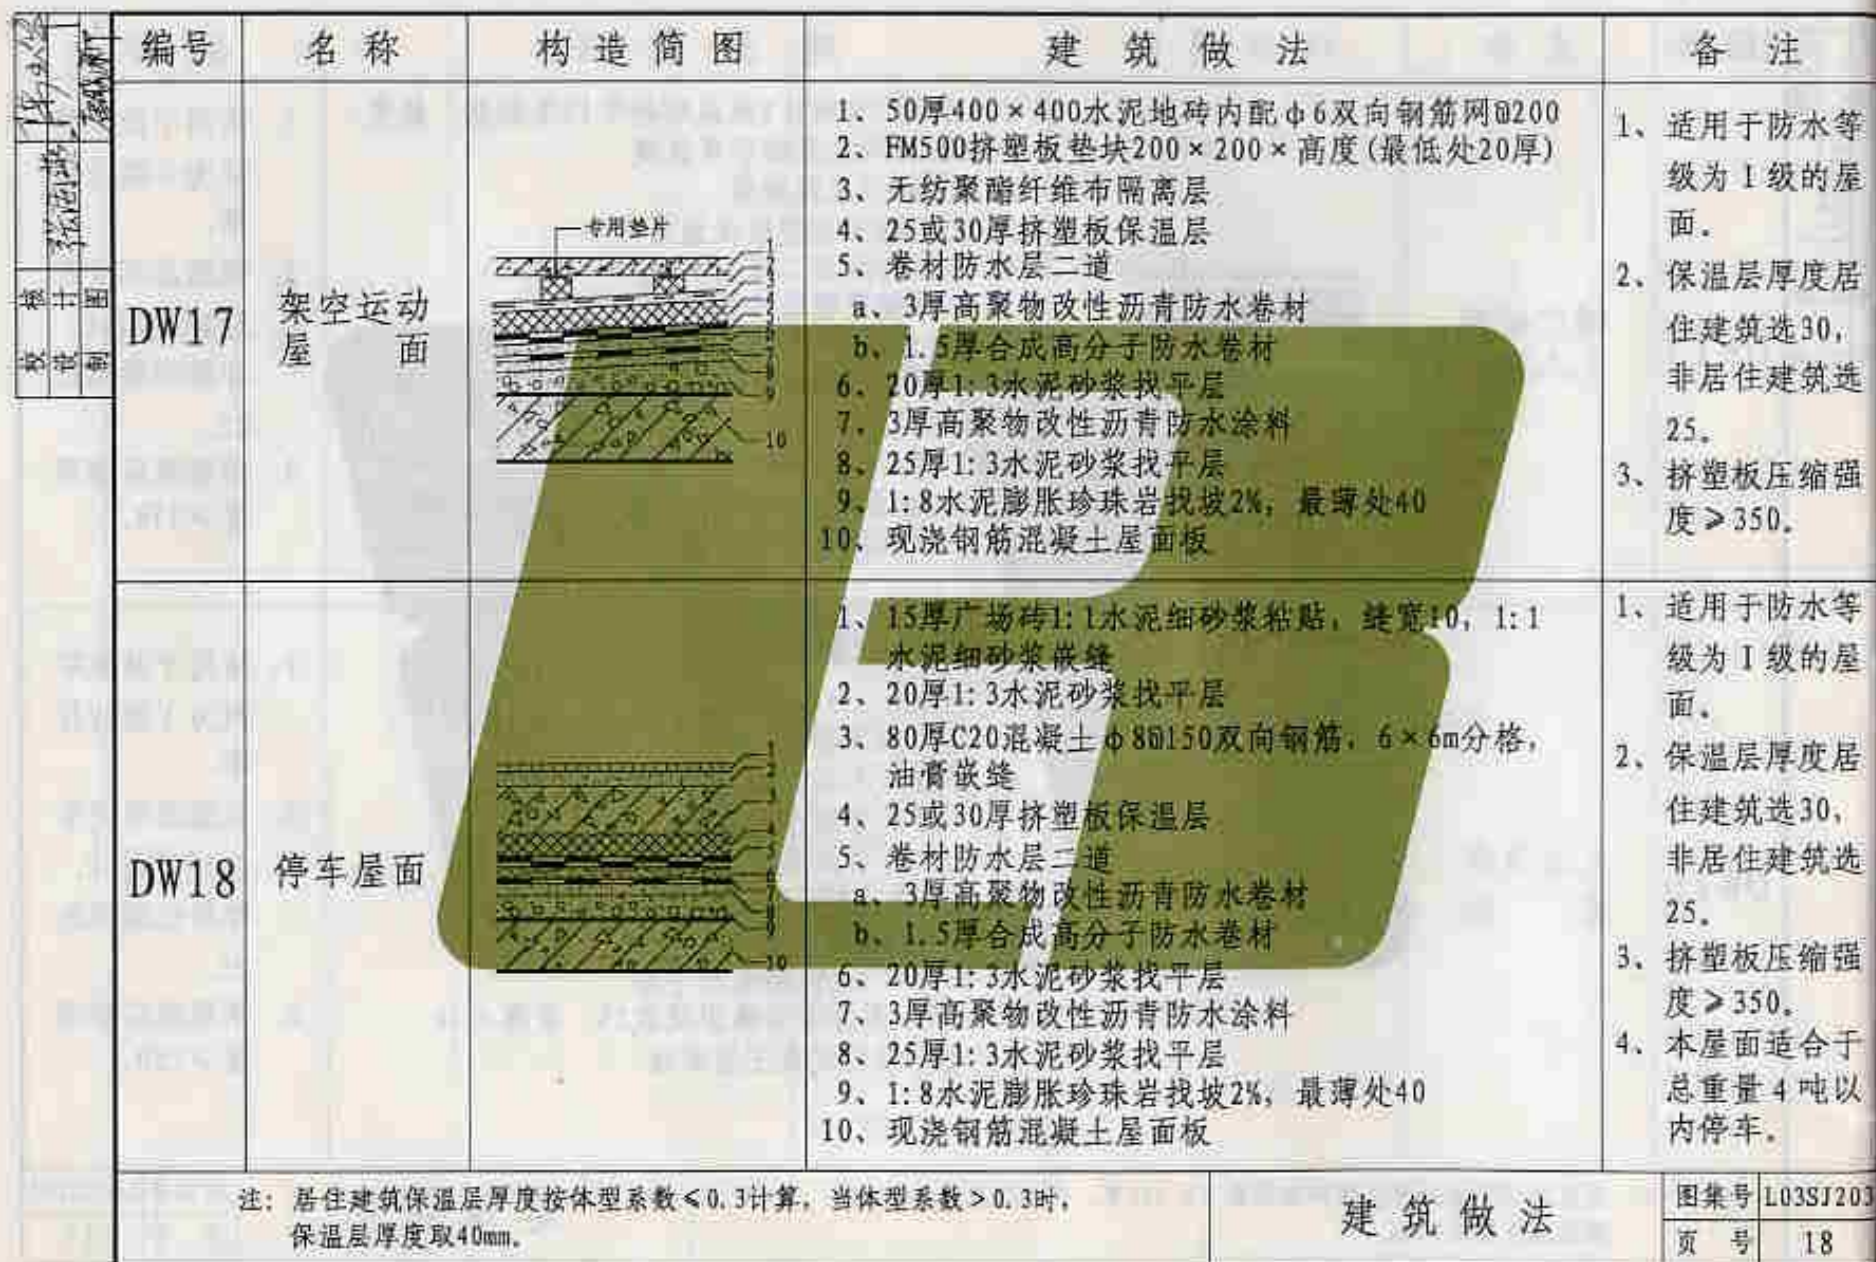 编号 名称 构造简图 建筑做法 备注
DW17
架空运动
屋面
专用垫片
10
1、50厚400×400水泥地砖内配ф6双向钢筋网@200
2、FM500挤塑板垫块200×200×高度(最低处20厚)
3、无纺聚酯纤维布隔离层
4、25或30厚挤塑板保温层
5、卷材防水层二道
a、3厚高聚物改性沥青防水卷材
b、1.5厚合成高分子防水卷材
6、20厚1:3水泥砂浆找平层
7、3厚高聚物改性沥青防水涂料
8、25厚1:3水泥砂浆找平层
9、1:8水泥膨胀珍珠岩找坡2%，最薄处40
10、现浇钢筋混凝土屋面板
1、适用于防水等
级为Ⅰ级的屋
面。
2、保温层厚度居
住建筑选30，
非居住建筑选
25。
3、挤塑板压缩强
度≥350。
DW18
停车屋面
10
1、15厚广场砖1:1水泥细砂浆粘贴，缝宽10，1:1
水泥细砂浆嵌缝
2、20厚1:3水泥砂浆找平层
3、80厚C20混凝土ф8@150双向钢筋，6×6m分格，
油膏嵌缝
4、25或30厚挤塑板保温层
5、卷材防水层二道
a、3厚高聚物改性沥青防水卷材
b、1.5厚合成高分子防水卷材
6、20厚1:3水泥砂浆找平层
7、3厚高聚物改性沥青防水涂料
8、25厚1:3水泥砂浆找平层
9、1:8水泥膨胀珍珠岩找坡2%，最薄处40
10、现浇钢筋混凝土屋面板
1、适用于防水等
级为Ⅰ级的屋
面。
2、保温层厚度居
住建筑选30，
非居住建筑选
25。
3、挤塑板压缩强
度≥350。
4、本屋面适合于
总重量4吨以
内停车。
注：居住建筑保温层厚度按体型系数≤0.3计算，当体型系数>0.3时，
保温层厚度取40mm。
建筑做法
图集号 L03SJ203
页号 18
校核
设计
制图